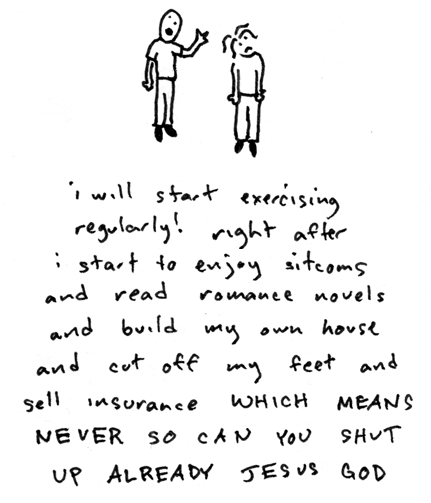 i will start exercising
regularly! right after
i start to enjoy sitcoms
and read romance novels
and build my own house
and cut off my feet and
sell insurance WHICH MEANS
NEVER SO CAN YOU SHUT
UP ALREADY JESUS GOD